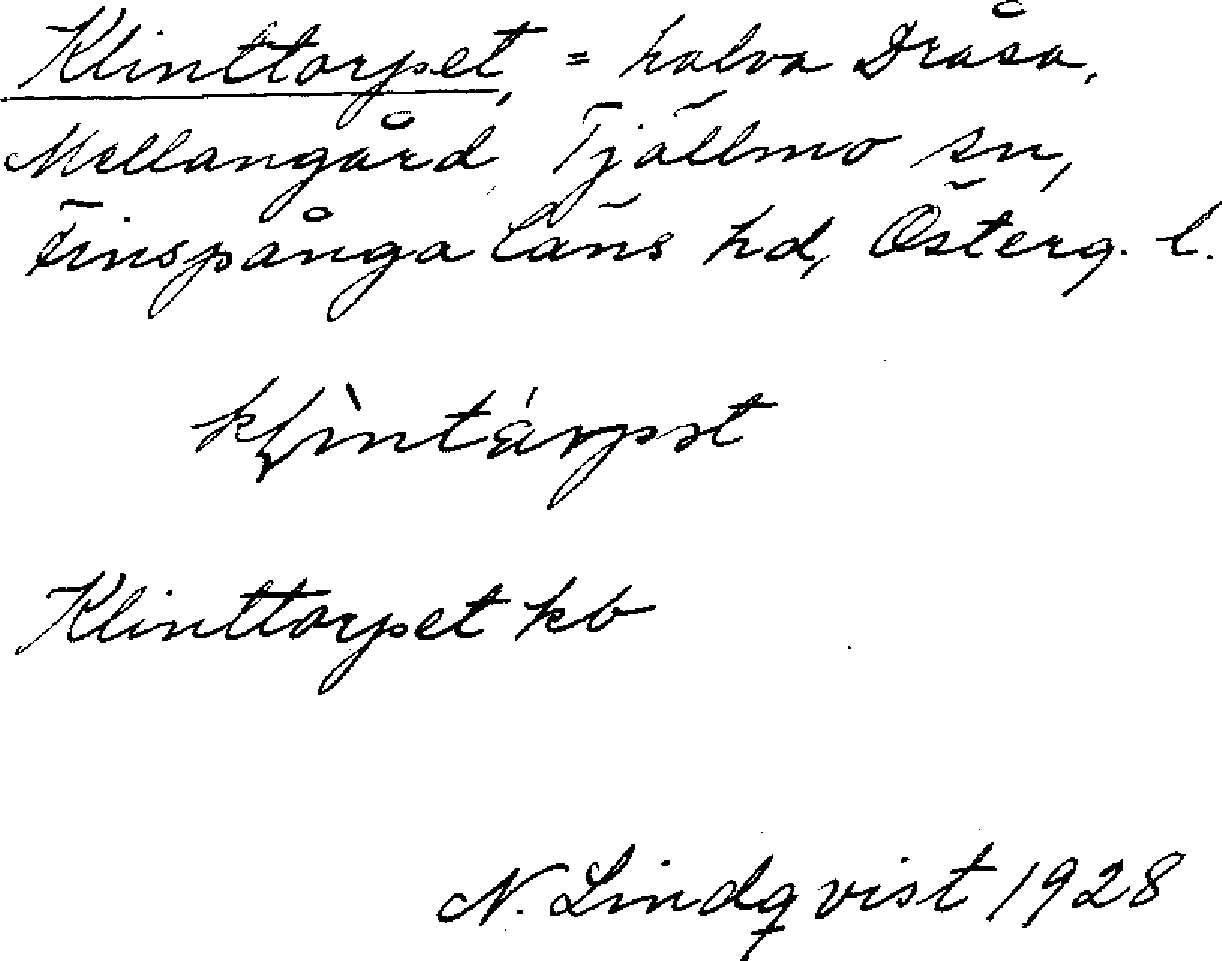 Klinttorpet, = halva Dråsa,
Mellangård, Tjällmo sn,
Finspånga läns hd, Österg. l.
Klinttorpet kb
N. Lindqvist 1928